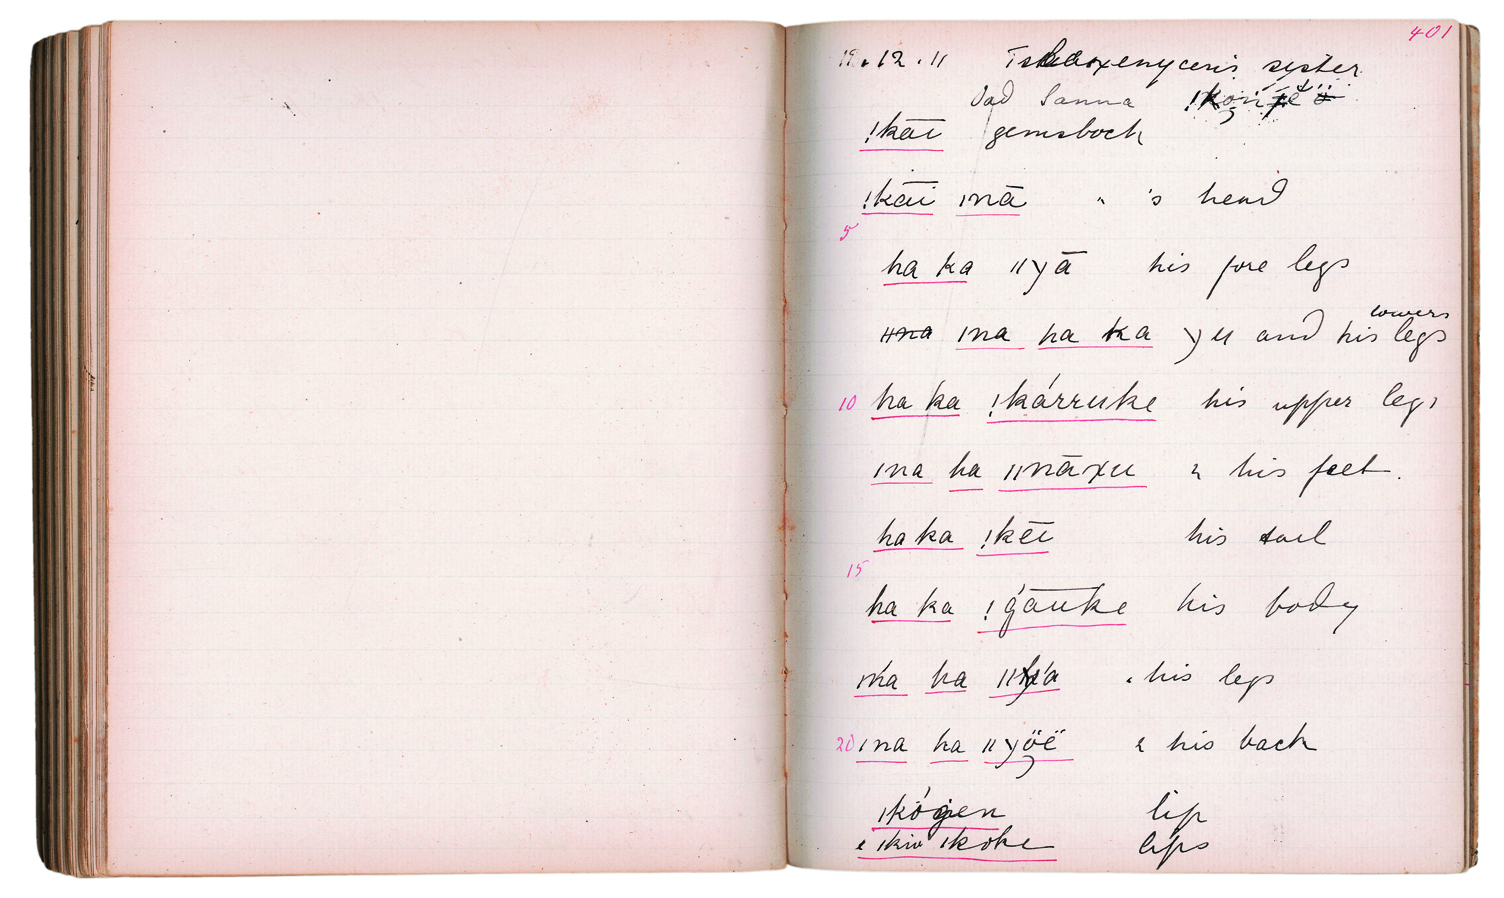 401
19.12.11 sister
Oud Sanna
!kāī gemsbock
!kāī ınā " 's head
5
ha ka ııyā his fore legs
lowers
ıına ına ha ka yu and his legs
10 ha ka !kárruke his upper legs
ına ha ıınāxu & his feet.
ha ka !kēī his tail
15
ha ka !gāuke his body
ına ha his legs
20 ına ha ııyöë & his back
ıkógen lip
ıkōke lips